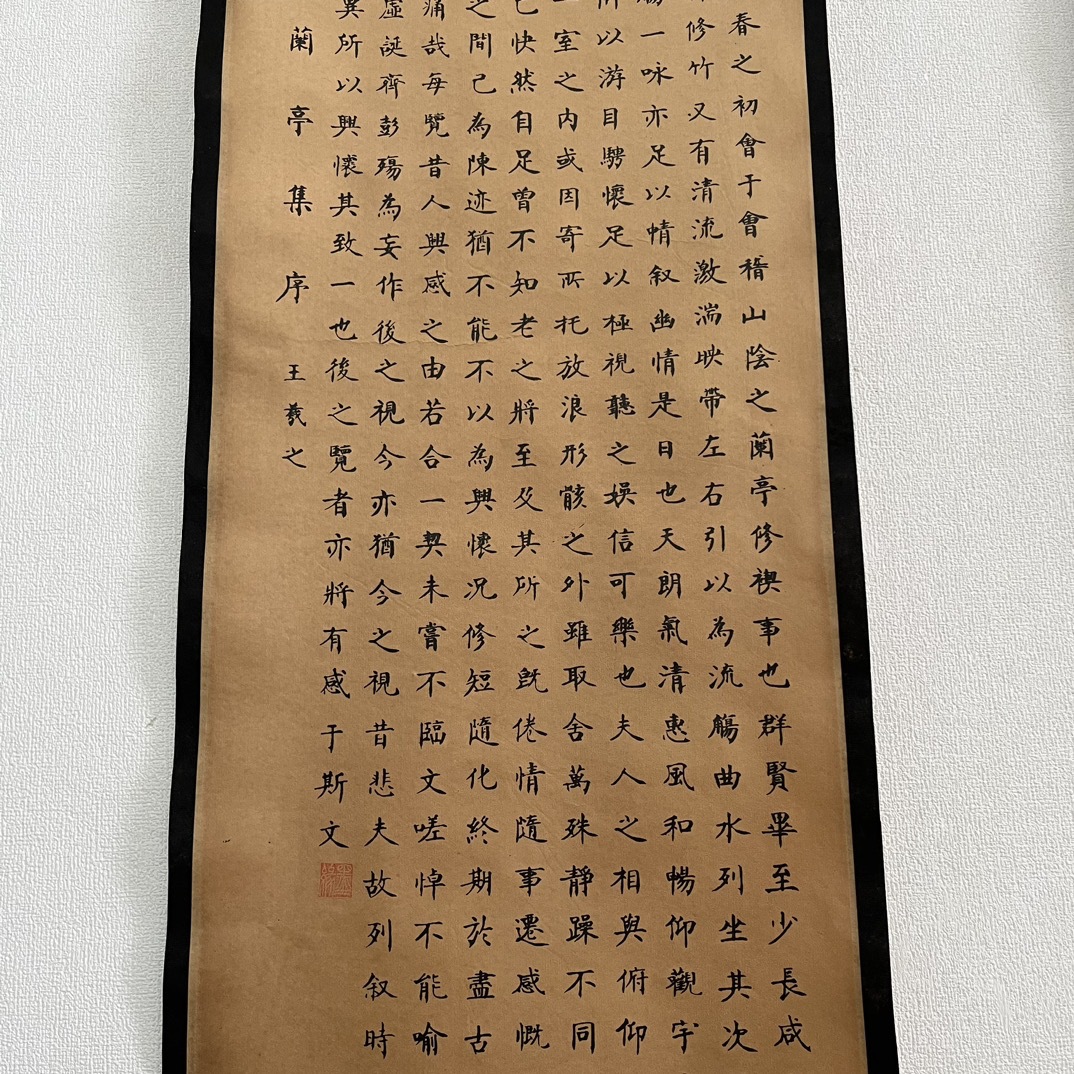 春之初會于會稽山陰之蘭亭修禊事也群賢畢至少長咸
修竹又有清流激湍映帶左右引以為流觴曲水列坐其次
觴一咏亦足以情叙幽情是日也天朗氣清惠風和暢仰觀宇
所以游目騁懷足以極視聽之娛信可樂也夫人之相與俯仰
一室之内或因寄所托放浪形骸之外雖取舍萬殊靜躁不同
己快然自足曾不知老之將至及其所之既倦情隨事遷感慨
之間已為陳迹猶不能不以為興懷況修短隨化終期於盡古
痛哉每覽昔人興感之由若合一契未嘗不臨文嗟悼不能喻
虛誕齊彭殤為妄作後之視今亦猶今之視昔悲夫故列叙時
異所以興懷其致一也後之覽者亦將有感于斯文
蘭亭集序 王羲之